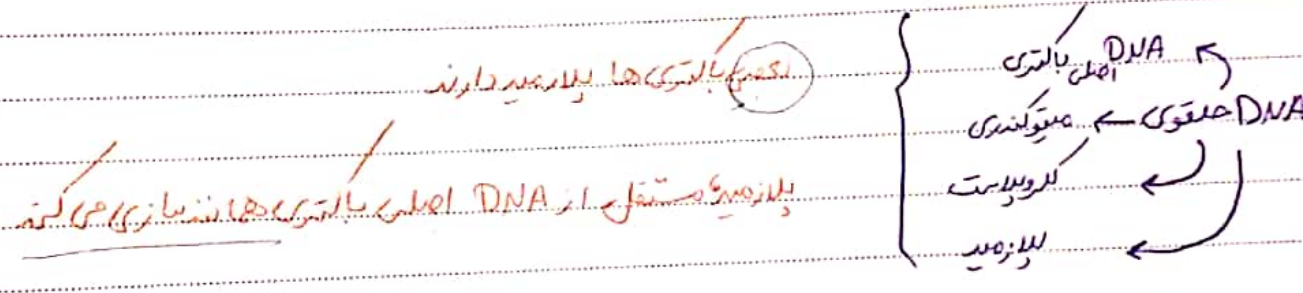 DNA اصلی باکتری
DNA حلقوی ← میتوکندری
کلروپلاست
پلازمید
بعضی باکتری ها پلازمید دارند
پلازمید مستقل از DNA اصلی باکتری همانندسازی می کند